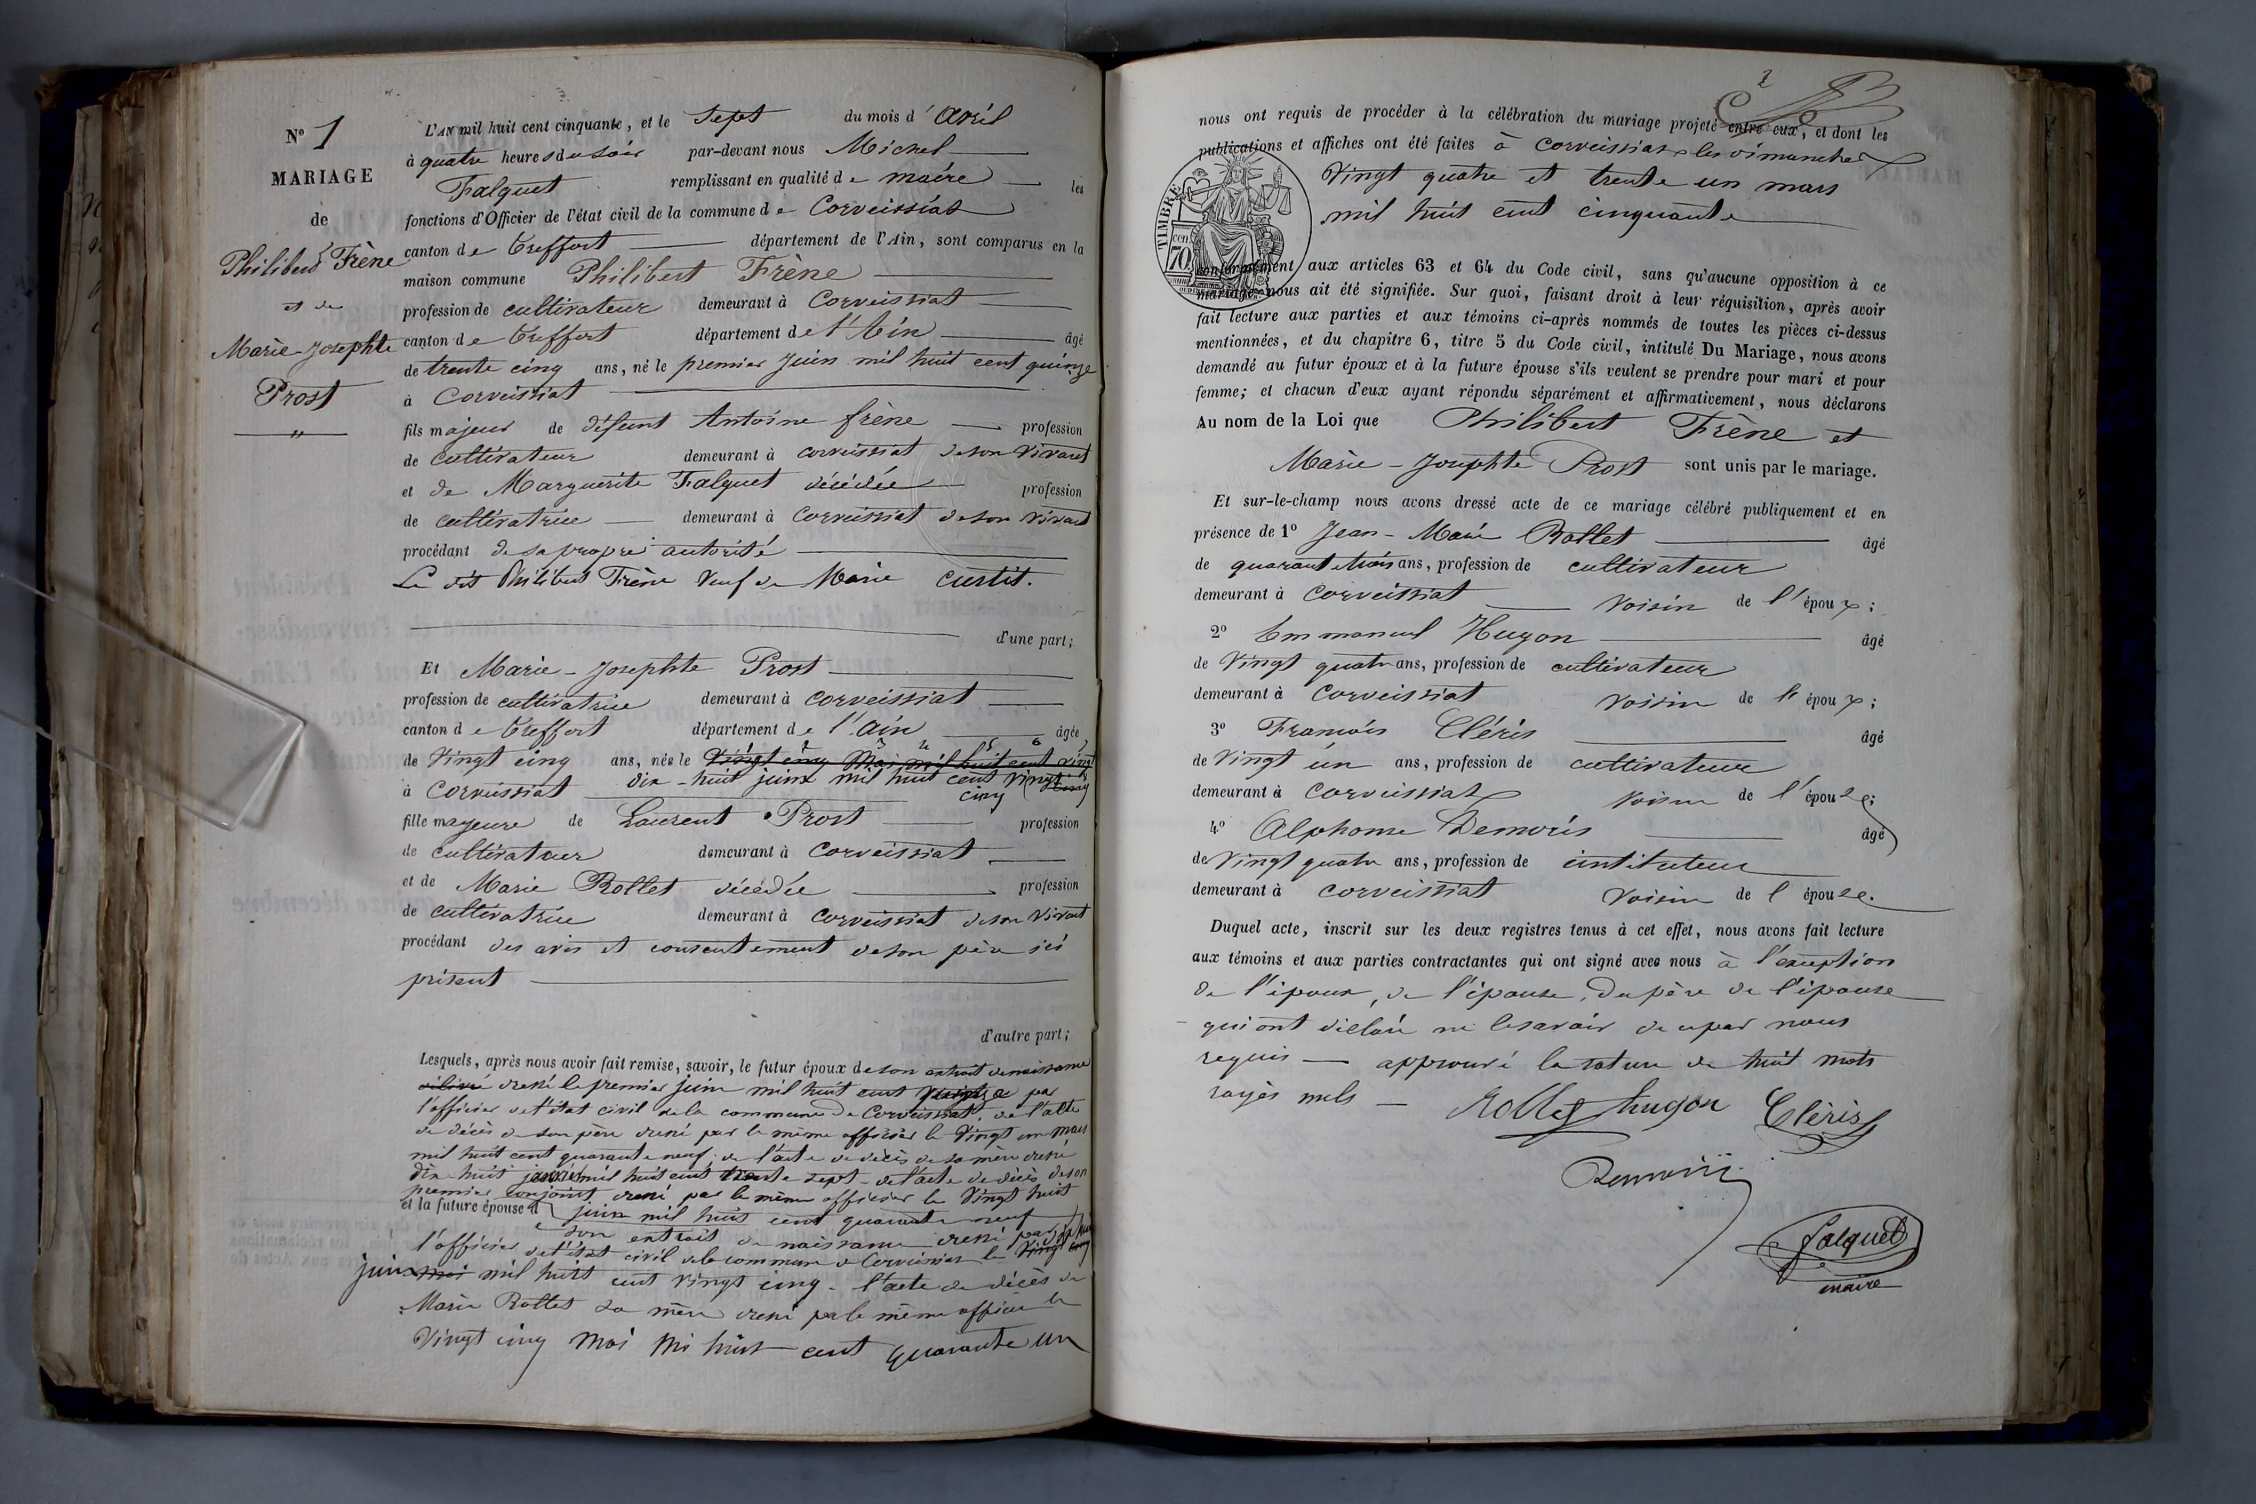 N° 1
MARIAGE
de
Philibert Frène
et de
Marie-Josephte
Prost
L'AN mil huit cent cinquante, et le Sept du mois d'avril
à quatre heures du soir par-devant nous Michel
Falquet remplissant en qualité de maire les
fonctions d'Officier de l'état civil de la commune de Corveissiat
canton de Treffort département de l'Ain, sont comparus en la
maison commune Philibert Frène
profession de cultivateur demeurant à Corveissiat
canton de Treffort département de l'Ain âgé
de trente cinq ans, né le premier juin mil huit cent quinze
à Corveissiat
fils majeur de défunt Antoine frène profession
de cultivateur demeurant à corveissiat de son vivant
et de Marguerite Falquet décédée profession
de cultivatrice demeurant à Corveissiat de son vivant
procédant de sa propre autorité
Le dit Philibert Frène veuf de Marie curtit.
d'une part;
Et Marie-Josephte Prost
profession de cultivatrice demeurant à corveissiat
canton de Treffort département de l'ain âgée
de vingt cinq ans, née le vingt cinq Mai mil huit cent vingt
à Corveissiat dix-huit juin mil huit cent vingt cinq
cinq
fille majeure de Laurent Prost profession
de cultivateur demeurant à corveissiat
et de Marie Rollet décédée profession
de cultivatrice demeurant à Corveissiat de son vivant
procédant des avis et consentement de son père ici
présent
d'autre part;
Lesquels, après nous avoir fait remise, savoir, le futur époux de son extrait de naissance
délivré dressé le premier juin mil huit cent quinze par
l'officier de l'état civil de la commune de Corveissiat, de l'acte
de décès de son père dressé par le même officier le vingt un mars
mil huit cent quarante neuf; de l'acte de décès de sa mère dressé
dix huit janvier mil huit cent trente sept - de l'acte de décès de son
premier conjoint dressé par le même officier le vingt huit
et la future épouse d juin mil huit cent quarante neuf
e son extrait de naissance dressé par
l'officier de l'état civil de la commune de Corveissiat le vingt cinq
juin mai mil huit cent vingt cinq - l'acte de décès de
Marie Rollet sa mère dressé par le même officier le
vingt cinq mai mil huit cent quarante un
nous ont requis de procéder à la célébration du mariage projeté entre eux, et dont les
publications et affiches ont été faites à corveissiat les dimanches
vingt quatre et trente un mars
mil huit cent cinquante
TIMBRE
cen
70
conformément aux articles 63 et 64 du Code civil, sans qu'aucune opposition à ce
mariage nous ait été signifiée. Sur quoi, faisant droit à leur réquisition, après avoir
fait lecture aux parties et aux témoins ci-après nommés de toutes les pièces ci-dessus
mentionnées, et du chapitre 6, titre 5 du Code civil, intitulé Du Mariage, nous avons
demandé au futur époux et à la future épouse s'ils veulent se prendre pour mari et pour
femme; et chacun d'eux ayant répondu séparément et affirmativement, nous déclarons
Au nom de la Loi que Philibert Frène et
Marie-Josephte Prost sont unis par le mariage.
Et sur-le-champ nous avons dressé acte de ce mariage célébré publiquement et en
présence de 1° Jean-Marie Rollet âgé
de quarante trois ans, profession de cultivateur
demeurant à Corveissiat voisin de l'époux;
2° Emmanuel Hugon âgé
de vingt quatre ans, profession de cultivateur
demeurant à Corveissiat voisin de l'époux;
3° François Cléris âgé
de vingt un ans, profession de cultivateur
demeurant à Corveissiat voisin de l'épouse;
4° Alphonse Demoris âgé
de vingt quatre ans, profession de instituteur
demeurant à corveissiat voisin de l'épouse.
Duquel acte, inscrit sur les deux registres tenus à cet effet, nous avons fait lecture
aux témoins et aux parties contractantes qui ont signé avec nous à l'exception
de l'époux, de l'épouse, du père de l'épouse
qui ont déclaré ne le savoir de ce par nous
requis - approuvé la rature de huit mots
rayés nuls -
Rollet hugon Cléris
Demoris
falquet
maire